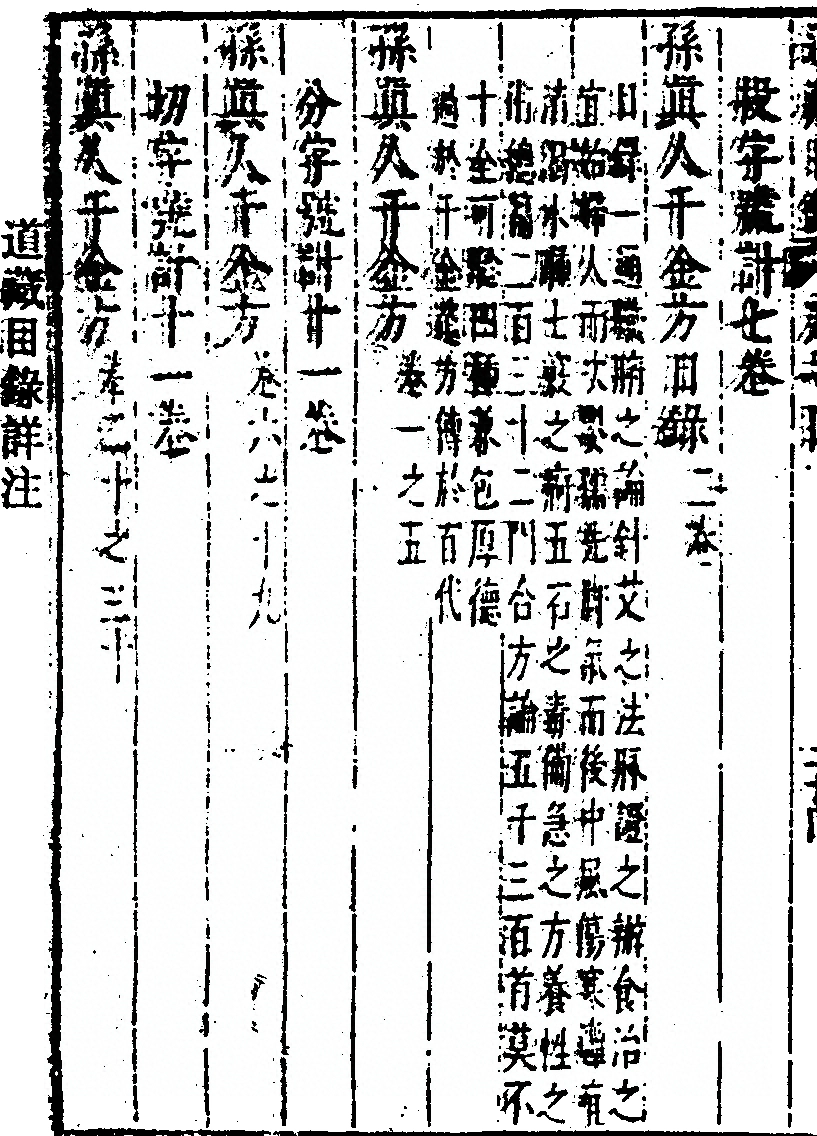 投字號計七卷
孫眞人千金方目錄二卷
目錄一通臟腑之論針艾之法脉證之辨食治之
宜始婦人而次嬰孺先脚氣而後中風傷寒癰疽
消渴水腫七竅之痾五石之毒備急之方養性之
術總篇二百三十二門合方論五千三百首莫不
十全可驗四種兼包厚德
過於千金遺方傳於百代
孫眞人千金方卷一之五
分字號計廿一卷
孫眞人千金方卷六之十九
切字號計十一卷
孫眞人千金方卷二十之三十
道藏目錄詳注